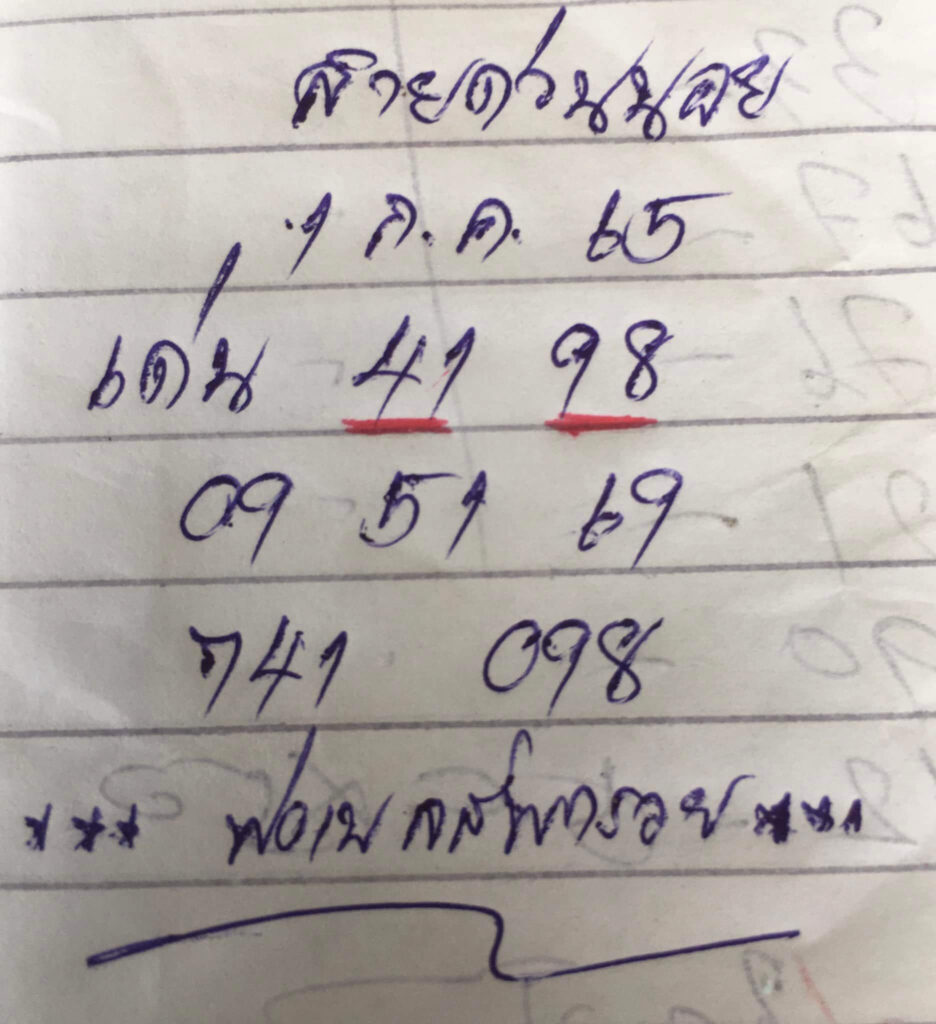 สายด่วนนอย
1 ก.ค. 65
เด่น 41 98
09 51 69
741 098
*** พ่อเบลล์พารวย ***